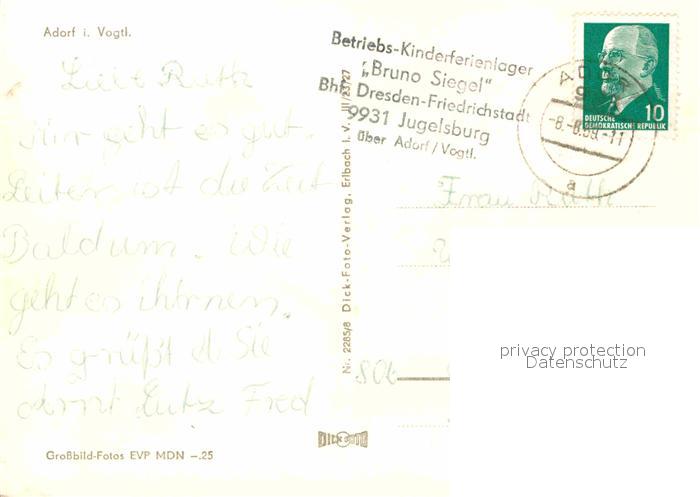 Adorf i. Vogtl.
Betriebs-Kinderferienlager
„Bruno Siegel"
Bhf. Dresden-Friedrichstadt
9931 Jugelsburg
über Adorf/Vogtl.
10
DEUTSCHE
DEMOKRATISCHE REPUBLIK
-8.-8.69.-11
a
Liebe Ruth
Mir geht es gut.
Leiter ist die Zeit
Bald um. Wie
geht es ihnen.
Es grüßt Sie
Lutz Fred
Frau Ruth
Nr. 2285/8 Dick-Foto-Verlag, Erlbach i. V. III/23/27
privacy protection
Datenschutz
DICK FOTO
Großbild-Fotos EVP MDN -.25